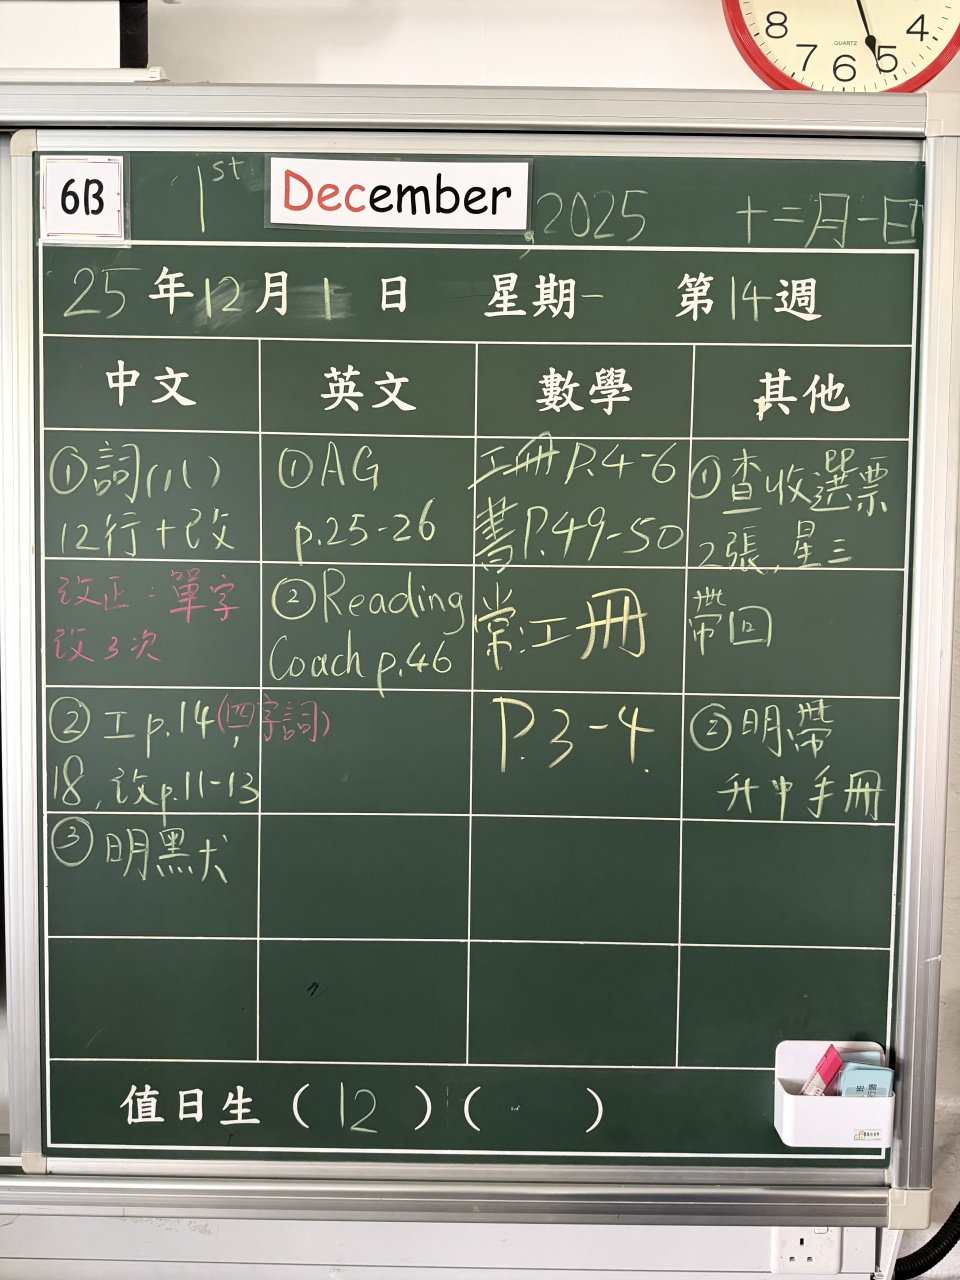 8 7 6 5 4
QUARTZ
6B 1st December, 2025 十二月一日
25年12月1日 星期一 第14週
中文
①詞(八)
12行+改
改正:單字
改3次
②工p.14(四字詞),
18,改p.11-13
③明黑犬
英文
①AG
p.25-26
②Reading
Coach p.46
數學
工冊P.4-6
書P.49-50
常:工冊
P.3-4.
其他
①查收選票
2張,星三
帶回
②明帶
升中手冊
值日生(12)( )